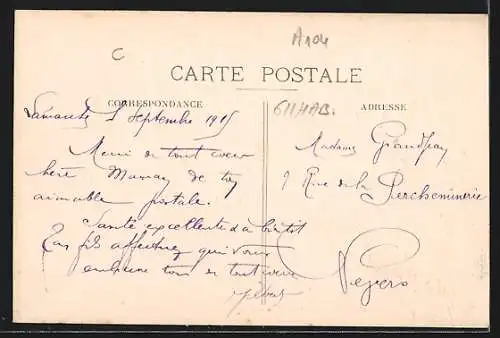 C
A104
CARTE POSTALE
CORRESPONDANCE
611HAB.
ADRESSE
Septembre 1915
Merci de tout cœur
chère Maman de ta
aimable postale.
Santé excellente à bientôt
Ton fils affectueux qui vous
embrasse tous de tout cœur
Madame Grandjean
9 Rue de la
Percheminerie